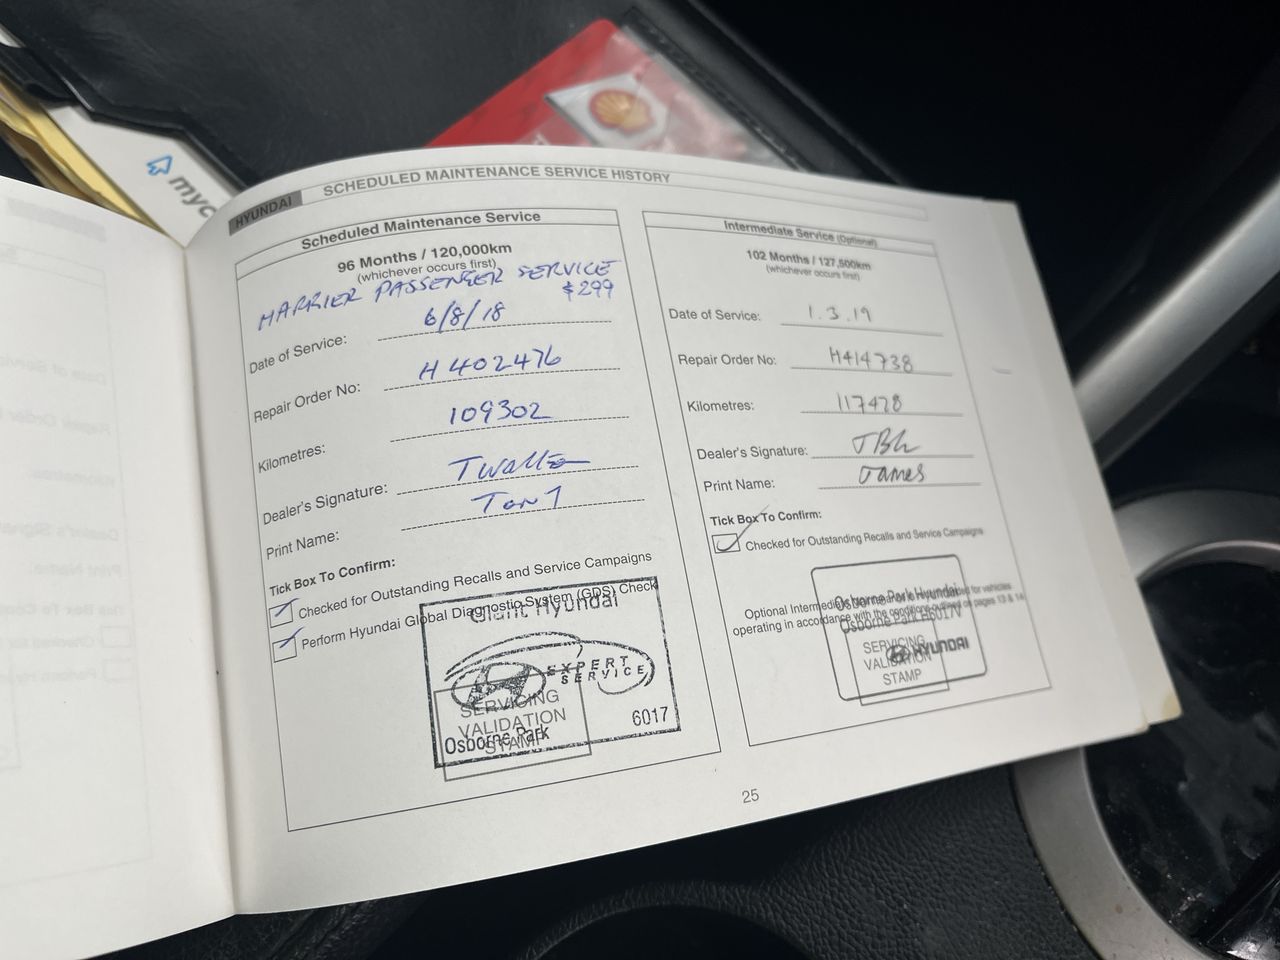 myc
HYUNDAI SCHEDULED MAINTENANCE SERVICE HISTORY
Scheduled Maintenance Service
96 Months / 120,000km
(whichever occurs first)
HARRIER PASSENGER SERVICE
$299
Date of Service: 6/8/18
Repair Order No: H402476
Kilometres: 109302
Dealer's Signature:
Print Name: Tony
Tick Box To Confirm:
Checked for Outstanding Recalls and Service Campaigns
Perform Hyundai Global Diagnostic System (GDS) Check
Hyundai
EXPERT
SERVICE
SERVICING
VALIDATION
STAMP
Osborne Park 6017
Intermediate Service (Optional)
102 Months / 127,500km
(whichever occurs first)
Date of Service: 1.3.19
Repair Order No: H414738
Kilometres: 117428
Dealer's Signature:
Print Name: James
Tick Box To Confirm:
Checked for Outstanding Recalls and Service Campaigns
Optional Intermediate for vehicles
operating in accordance with the conditions outlined on pages 13 & 14
Osborne Park Hyundai
Osborne Park
SERVICING
VALIDATION
STAMP
HYUNDAI
25